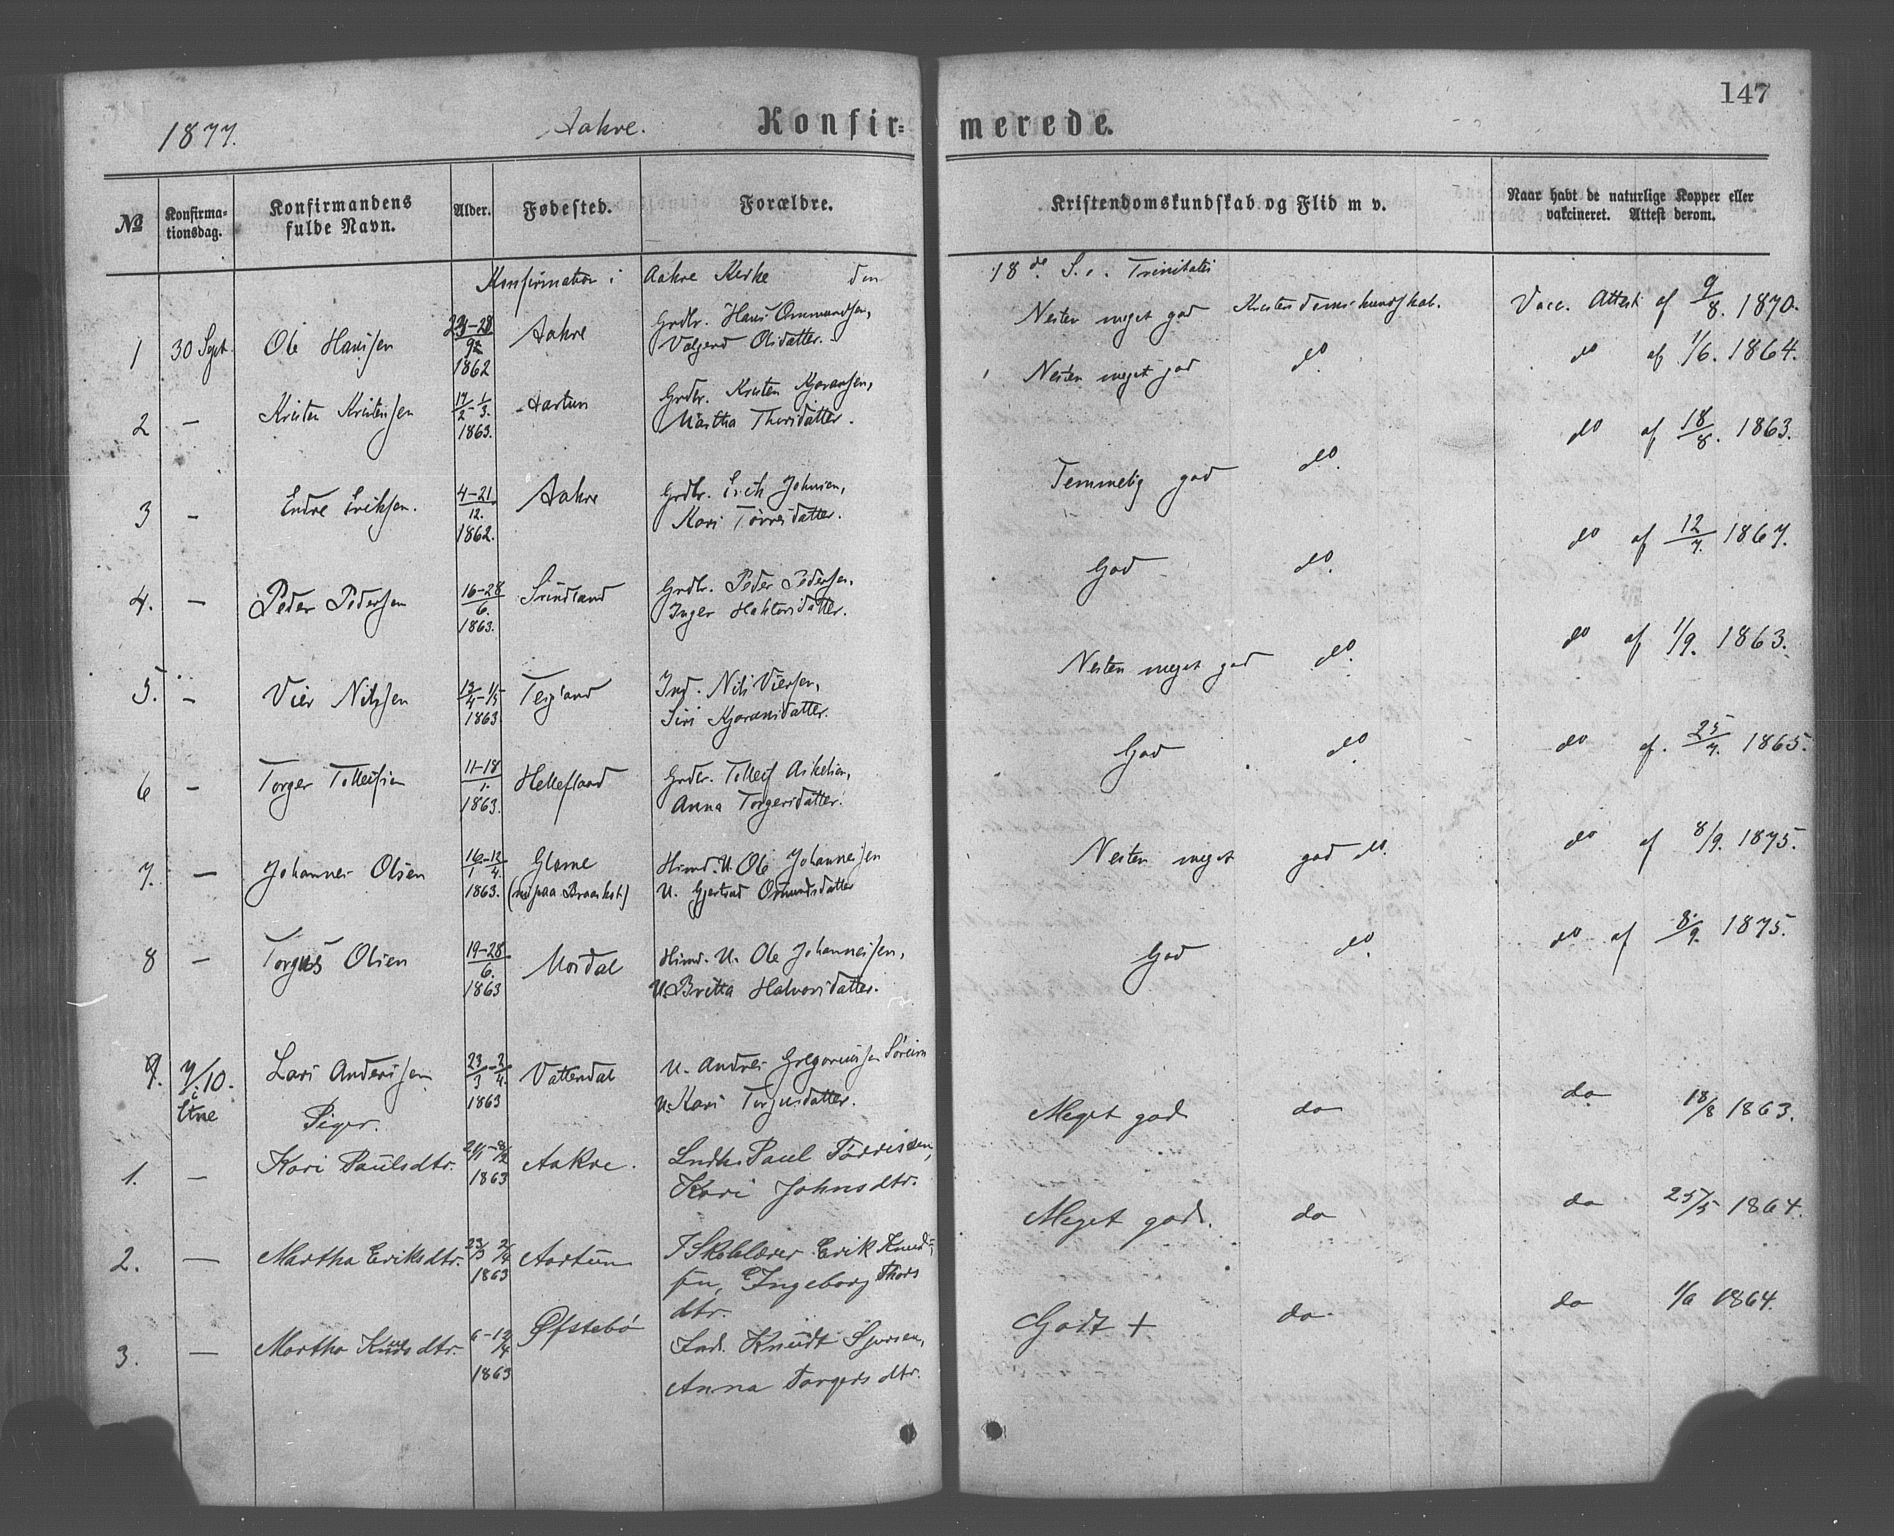 147
1877. Aakre. Konfir= merede.
№ Konfirma-tionsdag. Konfirmandens fulde Navn. Alder. Fødested. Forældre. Kristendomskundskab og Flid m v. Naar havt de naturlige Kopper eller vakcineret. Attest derom.
Konfirmation i Aakre Kirke den 18de S. . Trinitatis
1 30 Sept. Ole Hansen Aakre Grdbr. Hans Ommundsen, Nesten meget god Kristendomskundskab. Vacc. Attest af 9/8. 1870.
1862 Valgerd Olsdatter.
2 — Kristen Kristensen 17/2 - 1/3. Aartun Grdbr. Kristen Kjøransen, Nesten meget god do. do af 1/6. 1864.
1863. Martha Thorsdatter.
3 - Endre Eriksen. 4-21/12. Aakre Grdbr. Erik Johnsen, Temmelig god do. do af 18/8. 1863.
1862. Kari Tørresdatter.
4. - Peder Pedersen 16-28/6. Grdbr. Peder Pedersen, God do. do af 12/7. 1867.
1863. Inger Haktorsdatter.
5. - Vier Nilssen 13/4 - 1/5 Teigland Ind. Nils Viersen, Nesten meget god do. do af 1/9. 1863.
1863 Siri Kjøransdatter.
6 - Torger Tolleifsen 11-18/1. Helleflaad Grdbr. Tolleif Askelsen, God do. do af. 25/7. 1865.
1863. Anna Torgersdatter.
7. — Johannes Olsen 16/1-12/4. Glame Husmd. U. Ole Johannessen Nesten meget god do. do af 8/9. 1875.
1863. U. Gjertrud Osmundsdatter
8 - Torgus Olsen 19-28/6. Mosdal Husmd. U. Ole Johannessen, God do. do af 8/9. 1875.
1863 U. Britta Halvorsdatter.
9. 7/10. Lars Andersen 23/3-2/4. Vattendal U. Andres Gregoriussen Søreim
i Etne 1863 U. Kari Torgusdatter.
Piger.
1. — Kari Paulsdtr. Aakre. Paul Tørrisen, Meget god. do do 18/8 1863.
1863 Kari Johnsdtr.
2. — Martha Eriksdtr. 23/3 2/4 Aartun Erik Knud- Meget god. do do 25/5 1864.
1863 sen, Ingeborg Thors
dtr.
3. — Martha Knudsdtr. 6-12/4 Øfstebø Ind. Knudt Sjursen, Godt + do do 1864.
1863 Anna Torgersdtr.